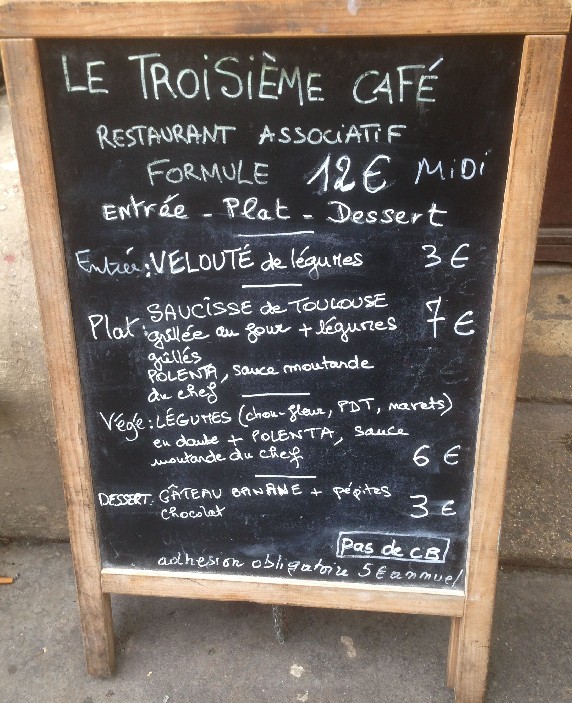 LE TROISIÈME CAFÉ
RESTAURANT ASSOCIATIF
FORMULE 12€ MIDI
Entrée - Plat - Dessert
Entrée: VELOUTÉ de légumes 3€
Plat: SAUCISSE de TOULOUSE
grillée au four + légumes 7€
grillés
POLENTA, sauce moutarde
du chef
Végé: LÉGUMES (chou-fleur, PDT, navets)
en daube + POLENTA, sauce
moutarde du chef 6€
DESSERT: GÂTEAU BANANE + pépites 3€
chocolat
pas de CB
adhesion obligatoire 5€ annuel